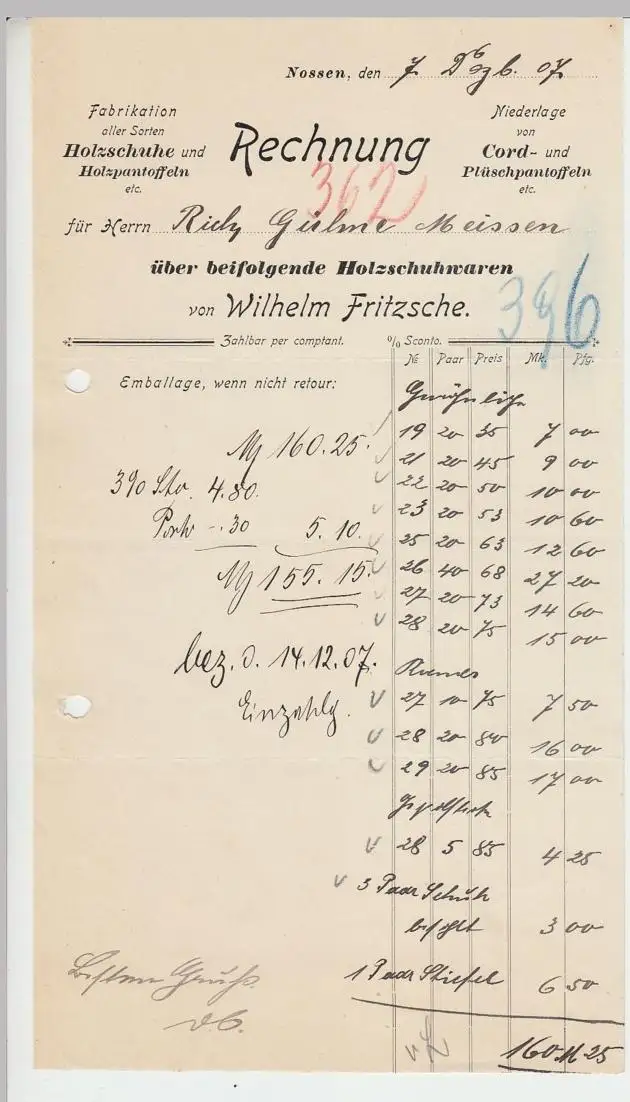 Nossen, den 7 Dezb. 07
Fabrikation
aller Sorten
Holzschuhe und
Holzpantoffeln
etc.
Rechnung
Niederlage
von
Cord- und
Plüschpantoffeln
etc.
362
für Herrn Meissen
über beifolgende Holzschuhwaren
von Wilhelm Fritzsche.
396
Zahlbar per comptant. % Sconto.
№ Paar Preis Mk. Pfg.
Emballage, wenn nicht retour:
Gewöhnliche
19 20 35 7 00
21 20 45 9 00
22 20 50 10 00
23 20 53 10 60
25 20 63 12 60
26 40 68 27 20
27 20 73 14 60
28 20 75 15 00
M 160.25.
3% Sto. 4.80.
Porto -.30 5.10.
M 155.15.
bez. d. 14.12.07.
Einzahlg.
27 10 75 7 50
28 20 80 16 00
29 20 85 17 00
28 5 85 4 25
3 Paar Schuh
besohlt 3 00
1 Paar Stiefel 6 50
160 M 25
Besten Gruß.
D.O.